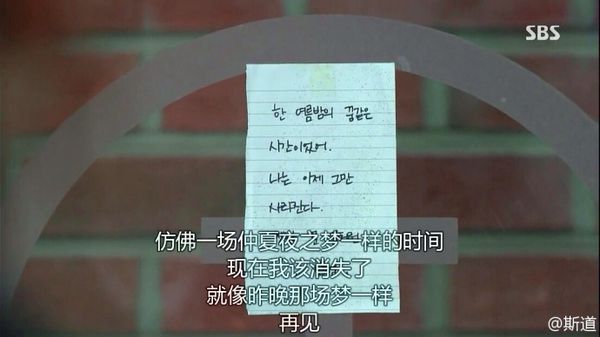 SBS
한 여름밤의 꿈같은
시간이었어.
나는 이제 그만
사라진다.
仿佛一场仲夏夜之梦一样的时间
现在我该消失了
就像昨晚那场梦一样
再见
@斯道